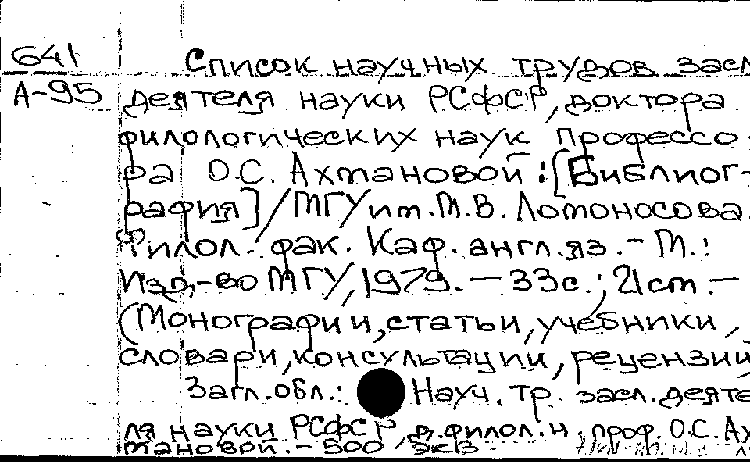 641
А-95
Список научных трудов засл
деятеля науки РСФСР, доктора
филологических наук профессо-
ра О.С. Ахмановой : [Библиог-
рафия] / МГУ им. М.В. Ломоносова.
Филол. фак. Каф. англ. яз. - М.:
Изд-во МГУ, 1979. - 33с.; 21 см. -
(Монографии, статьи, учебники,
словари, консультации, рецензии
Загл. обл.: Науч. тр. засл. деяте
ля науки РСФСР, д. филол. н. проф. О.С. Ах
мановой. - 500 экз.